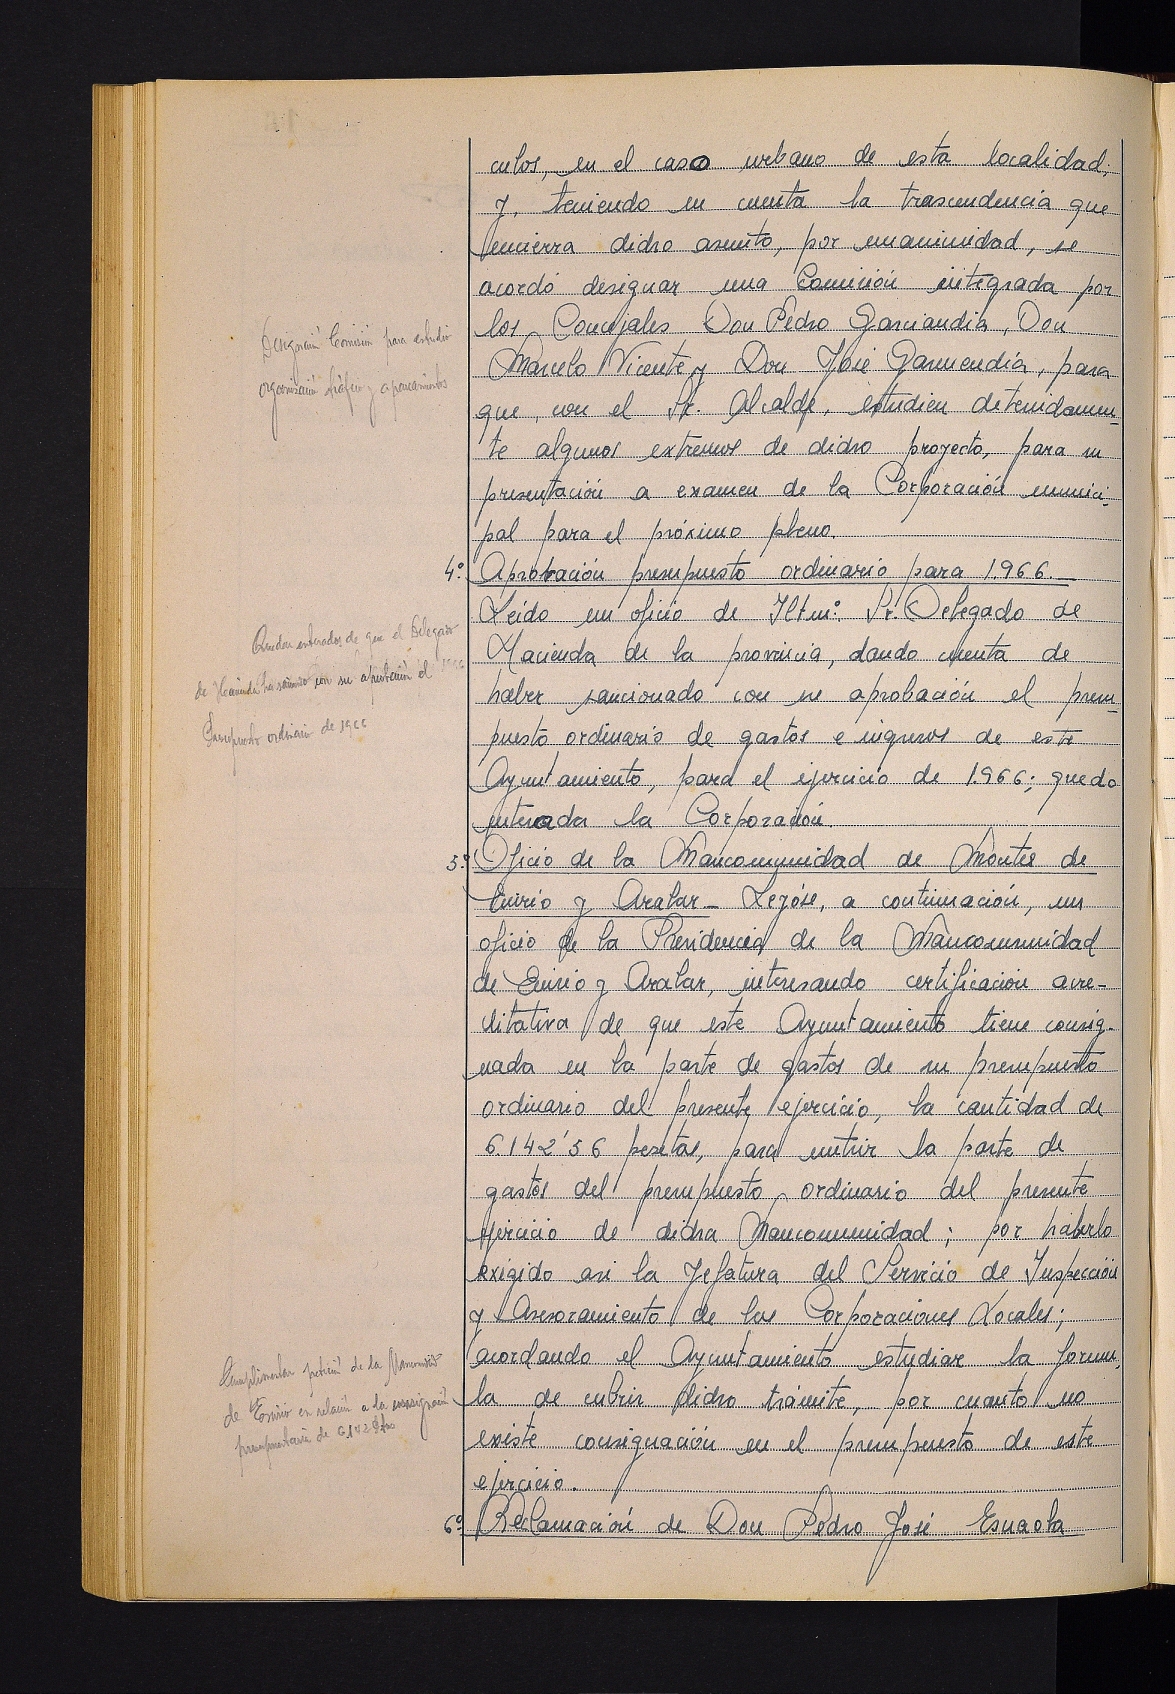 culos, en el caso urbano de esta localidad;
y, teniendo en cuenta la trascendencia que
encierra dicho asunto, por unanimidad, se
acordó designar una Comisión integrada por
los Concejales Don Pedro Garciandia, Don
Marcelo Vicente y Don José Garmendia, para
que, con el Sr. Alcalde, estudien detenidamen-
te algunos extremos de dicho proyecto, para su
presentación a examen de la Corporación munici-
pal para el próximo pleno.
Designación Comisión para estudio
organización tráfico y aparcamientos
4º. Aprobación presupuesto ordinario para 1.966.
Leído un oficio de Iltmº. Sr. Delegado de
Hacienda de la provincia, dando cuenta de
haber sancionado con su aprobación el presu-
puesto ordinario de gastos e ingresos de este
Ayuntamiento, para el ejercicio de 1.966; quedo
enterada la Corporación.
Quedan enterados de que el Delegado
de Hacienda ha sancionado con su aprobación el
Presupuesto ordinario de 1966
5º. Oficio de la Mancomunidad de Montes de
Enirio y Aralar - Leyóse, a continuación, un
oficio de la Presidencia de la Mancomunidad
de Enirio y Aralar, interesando certificación acre-
ditativa de que este Ayuntamiento tiene consig-
nada en la parte de gastos de su presupuesto
ordinario del presente ejercicio, la cantidad de
6.142'56 pesetas, para nutrir la parte de
gastos del presupuesto ordinario del presente
ejercicio de dicha Mancomunidad; por haberlo
exigido asi la Jefatura del Servicio de Inspección
y Asesoramiento de las Corporaciones Locales;
acordando el Ayuntamiento estudiar la formu-
la de cubrir dicho trámite, por cuanto no
existe consignación en el presupuesto de este
ejercicio.
Cumplimentar petición de la Mancomunidad
de Enirio en relación a la consignación
presupuestaria de 6.142 Ptas
6º. Reclamación de Don Pedro José Esnaola